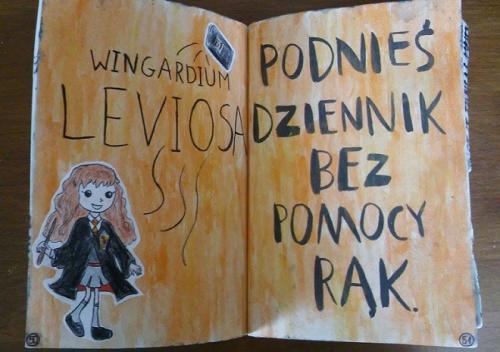 WINGARDIUM
LEVIOSA
PODNIEŚ
DZIENNIK
BEZ
POMOCY
RĄK.
51